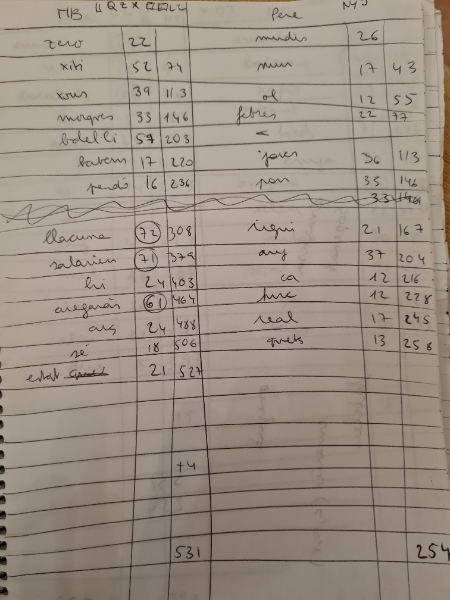 MB Pere
zero 22 mundes 26
xiti 52 74 nun 17 43
xous 39 113 ol 12 55
morques 33 146 febres 22 77
botelli 57 203 <
tabem 17 220 jares 36 113
perdó 16 236 pon 35 146
33
llacuna 72 308 iiqui 21 167
salarien 71 379 any 37 204
hi 24 403 ca 12 216
aregaràs 61 464 12 228
ars 24 488 real 17 245
sé 18 506 quets 13 258
estat 21 527
+4
531 254